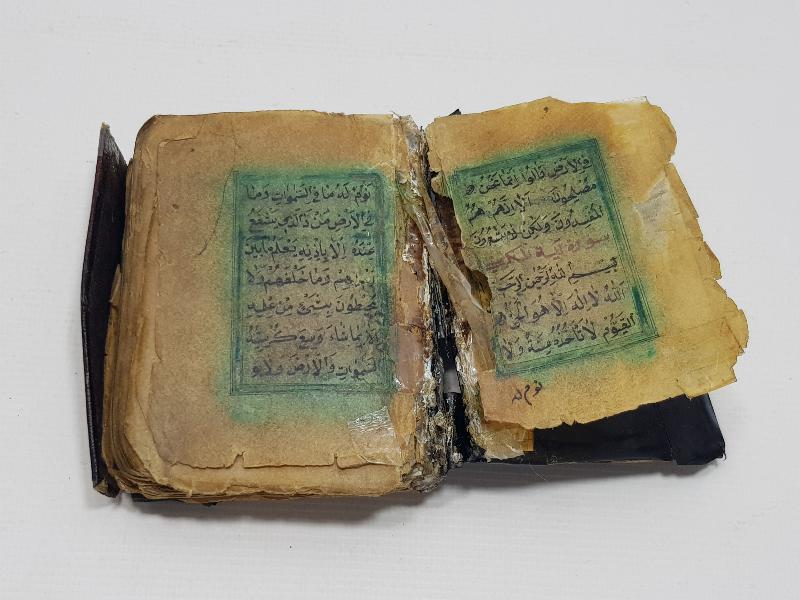 في الارض قالوا انما نحن
مصلحون الا انهم هم
المفسدون ولكن لا يشعرون
سورة آية الكرسي
بسم الله الرحمن
الله لا اله الا هو الحي
القيوم لا تأخذه سنة ولا
نوم له
نوم له ما في السموات وما
في الارض من ذا الذي يشفع
عنده الا باذنه يعلم ما بين
ايديهم وما خلفهم ولا
يحيطون بشيء من علمه
الا بما شاء وسع كرسيه
السموات والارض ولا يؤ